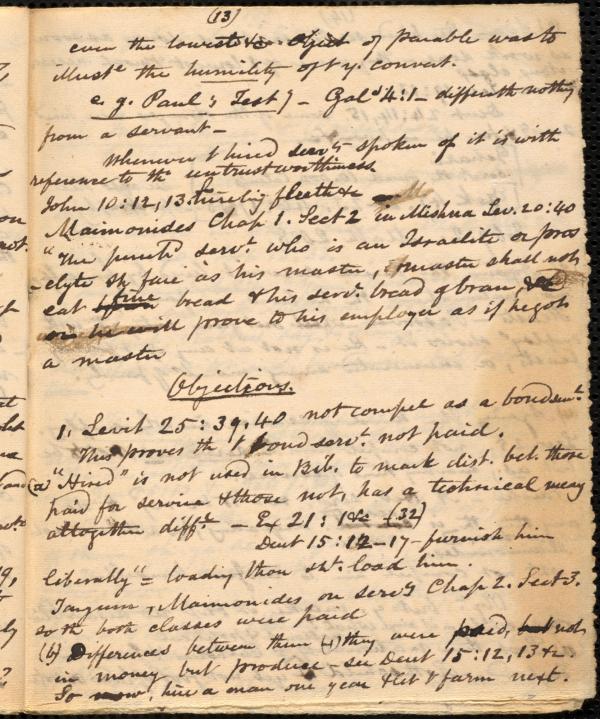 (13)
even the lowest &c. object of parable was to
illuste the humility of ye. convert.
e. g. Paul's Testy - Gala 4:1 - differeth nothing
from a servant -
Whenever t hired servts spoken of it is with
reference to the untrustworthiness
John 10:12,13 hireling fleeth &c
Maimonides Chap 1. Sect 2 in Mishna Lev. 20:40
"The purchd servt. who is an Israelite or pros
-elyte sh. fare as his master, master shall not
eat fine bread & his servt. bread of bran,
or he will prove to his employer as if he got
a master
Objections.
1. Levit 25:39,40 not compel as a bondservt.
This proves th t bondservt. not paid.
(a) "Hired" is not used in Bib. to mark dist. bet. those
paid for service & those not, has a technical meang
altogether difft. - Ex 21:1&c (32)
Deut 15:12-17 - furnish him
liberally" = loading thou sht. load him.
Targum, Maimonides on servts Chap 2. Sect 3.
so th both classes were paid
(b) Differences between them (1) they were paid, not
in money but produce - see Deut 15:12,13 &c
So now, hire a man one year & let t farm next.